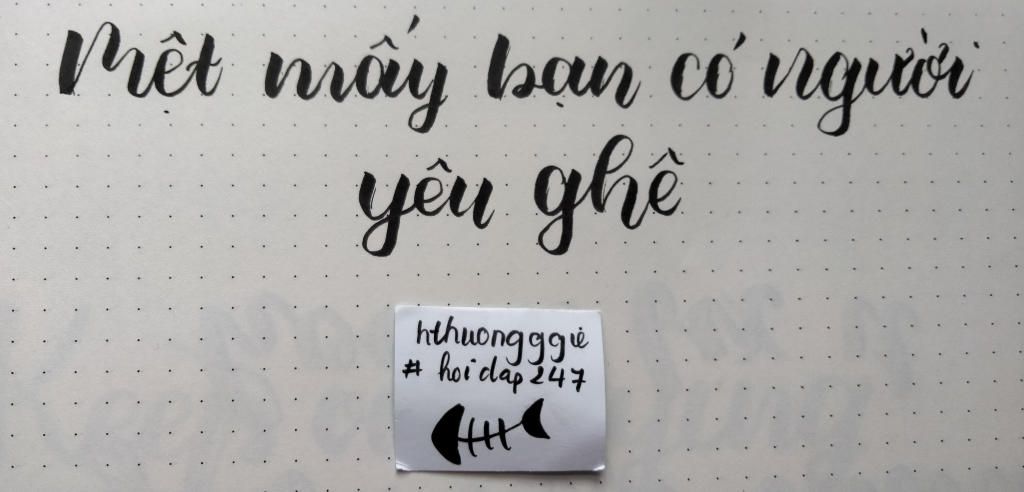 Mệt mấy bạn có người
yêu ghê
hthuongggiè
# hoidap247